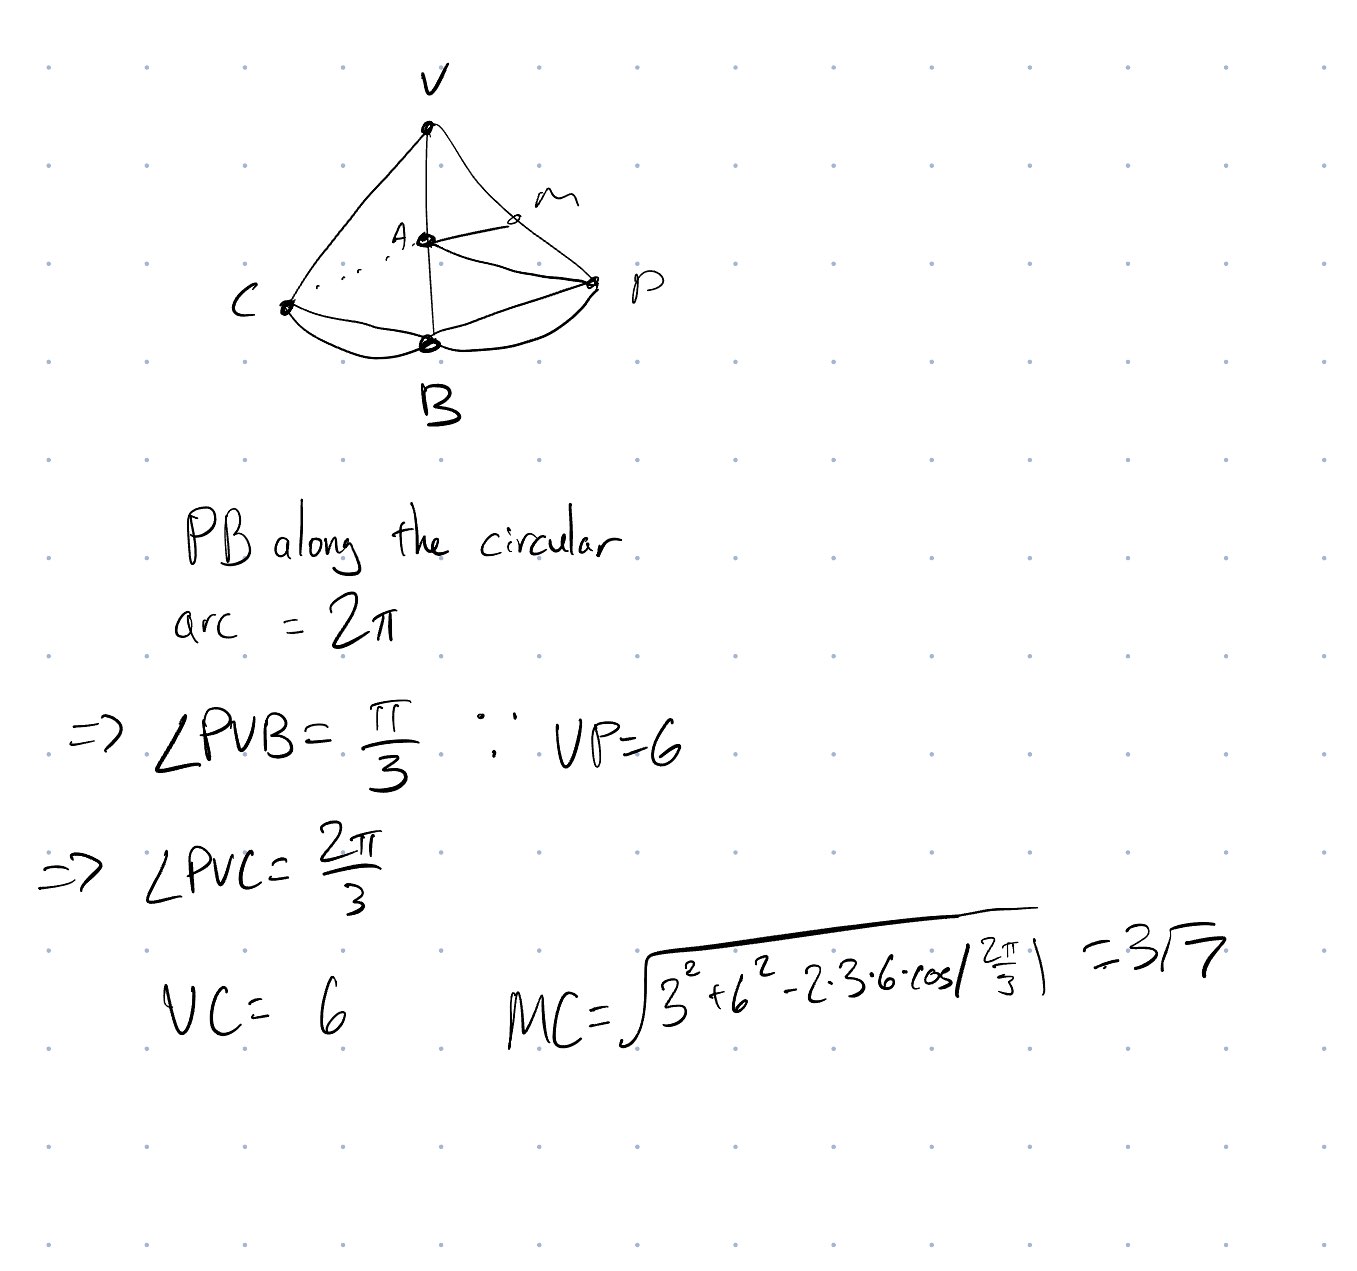 V
M
A
P
C
B
PB along the circular
arc = 2π
=> ∠PVB = π/3 ∵ VP=6
=> ∠PVC = 2π/3
VC = 6 MC = √(3²+6²-2·3·6·cos(2π/3)) = 3√7